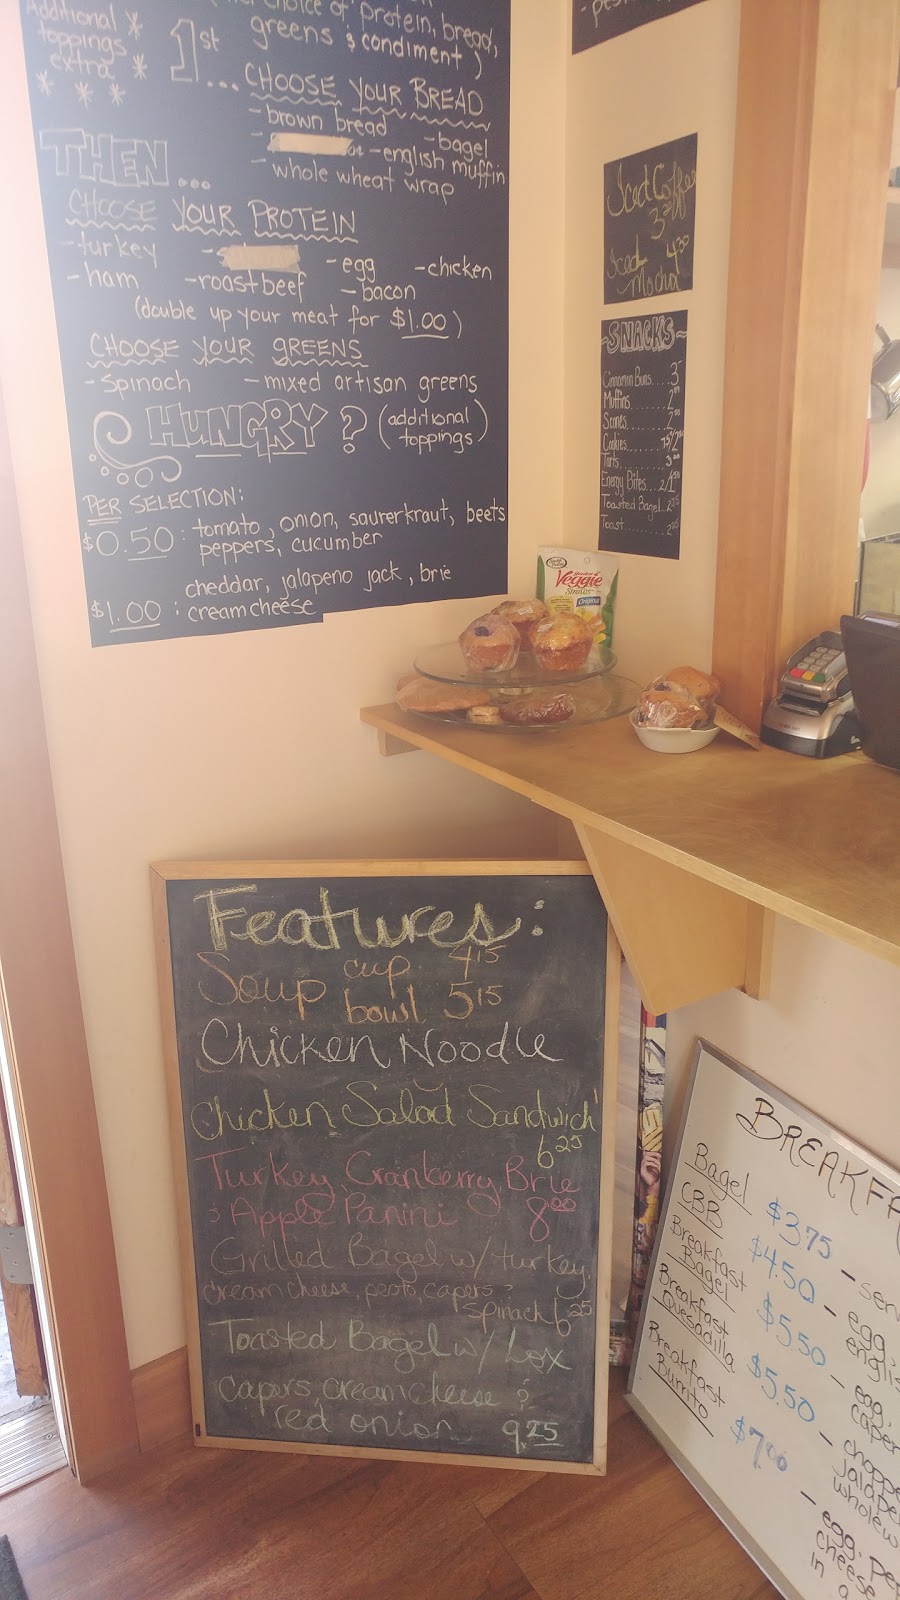 Additional
toppings
extra
choice of protein, bread,
greens & condiment
1st ... CHOOSE YOUR BREAD
- brown bread
- bagel
- english muffin
- whole wheat wrap
THEN...
CHOOSE YOUR PROTEIN
- turkey
- egg
- chicken
- ham
- roast beef
- bacon
(double up your meat for $1.00)
CHOOSE YOUR GREENS
- spinach - mixed artisan greens
HUNGRY? (additional
toppings)
PER SELECTION:
$0.50 : tomato, onion, saurerkraut, beets
peppers, cucumber
cheddar, jalapeno jack, brie
$1.00 : creamcheese
Iced Coffee
Iced 4
Mocha
-SNACKS-
Cinnamon Buns.....3
Muffins
Scones
Cookies
Tarts
Energy Bites
Toasted Bagel
Toast
Veggie
Original
Features:
Soup cup 4.15
bowl 5.15
Chicken Noodle
Chicken Salad Sandwich
6.25
Turkey, Cranberry, Brie
& Apple Panini 8.00
Grilled Bagel w/ turkey,
cream cheese, pesto, capers &
spinach 6.25
Toasted Bagel w/ Lox
capers, creamcheese &
red onion 9.25
BREAKFA
Bagel $3.75 - serv
CBB $4.50 - egg,
englis
Breakfast
Bagel $5.50 - egg,
caper
Breakfast
Quesadilla $5.50 - choppe
jalape
whole w
Breakfast
Burrito $7.00 - egg, pe
cheese
in a